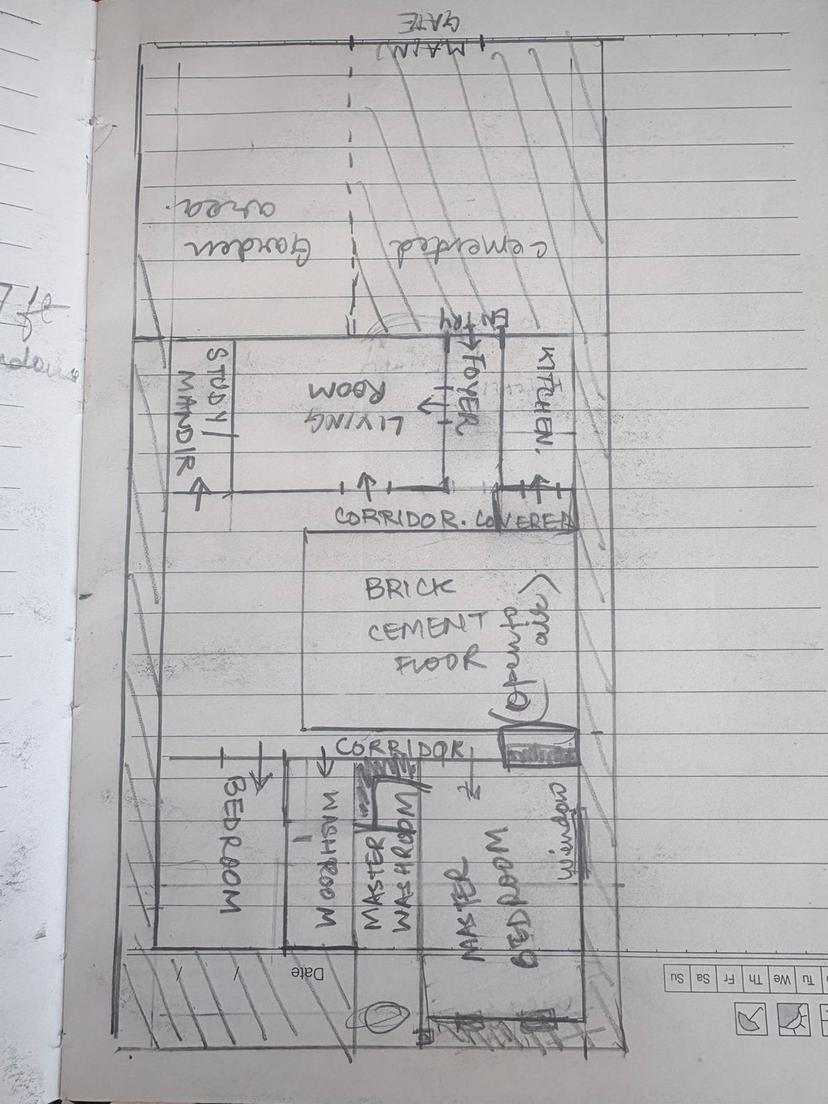 MAIN
GATE
Garden
area.
cemented
ENTRY
STUDY/
MANDIR
LIVING
ROOM
FOYER
KITCHEN.
CORRIDOR. COVERED
BRICK
CEMENT
FLOOR
(Open to
air)
CORRIDOR
BEDROOM
WASHROOM
MASTER
WASHROOM
MASTER
BEDROOM
window
Date
/ /
Tu We Th Fr Sa Su
7 ft